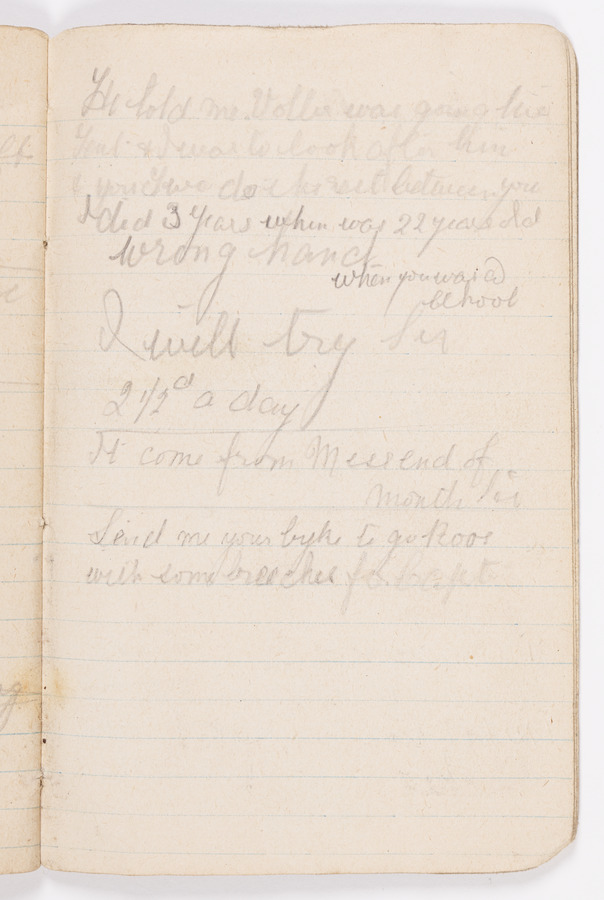 He told me Vollie was going his
Tent & I was to look after him
& you Two do the rest between you
I did 3 Years when was 22 years old
wrong hand
when you was a
School
I will try Sir
2 1/2d a day
It come from Mess end of
month Sir
Send me your byke to go
with some breeches for Capt